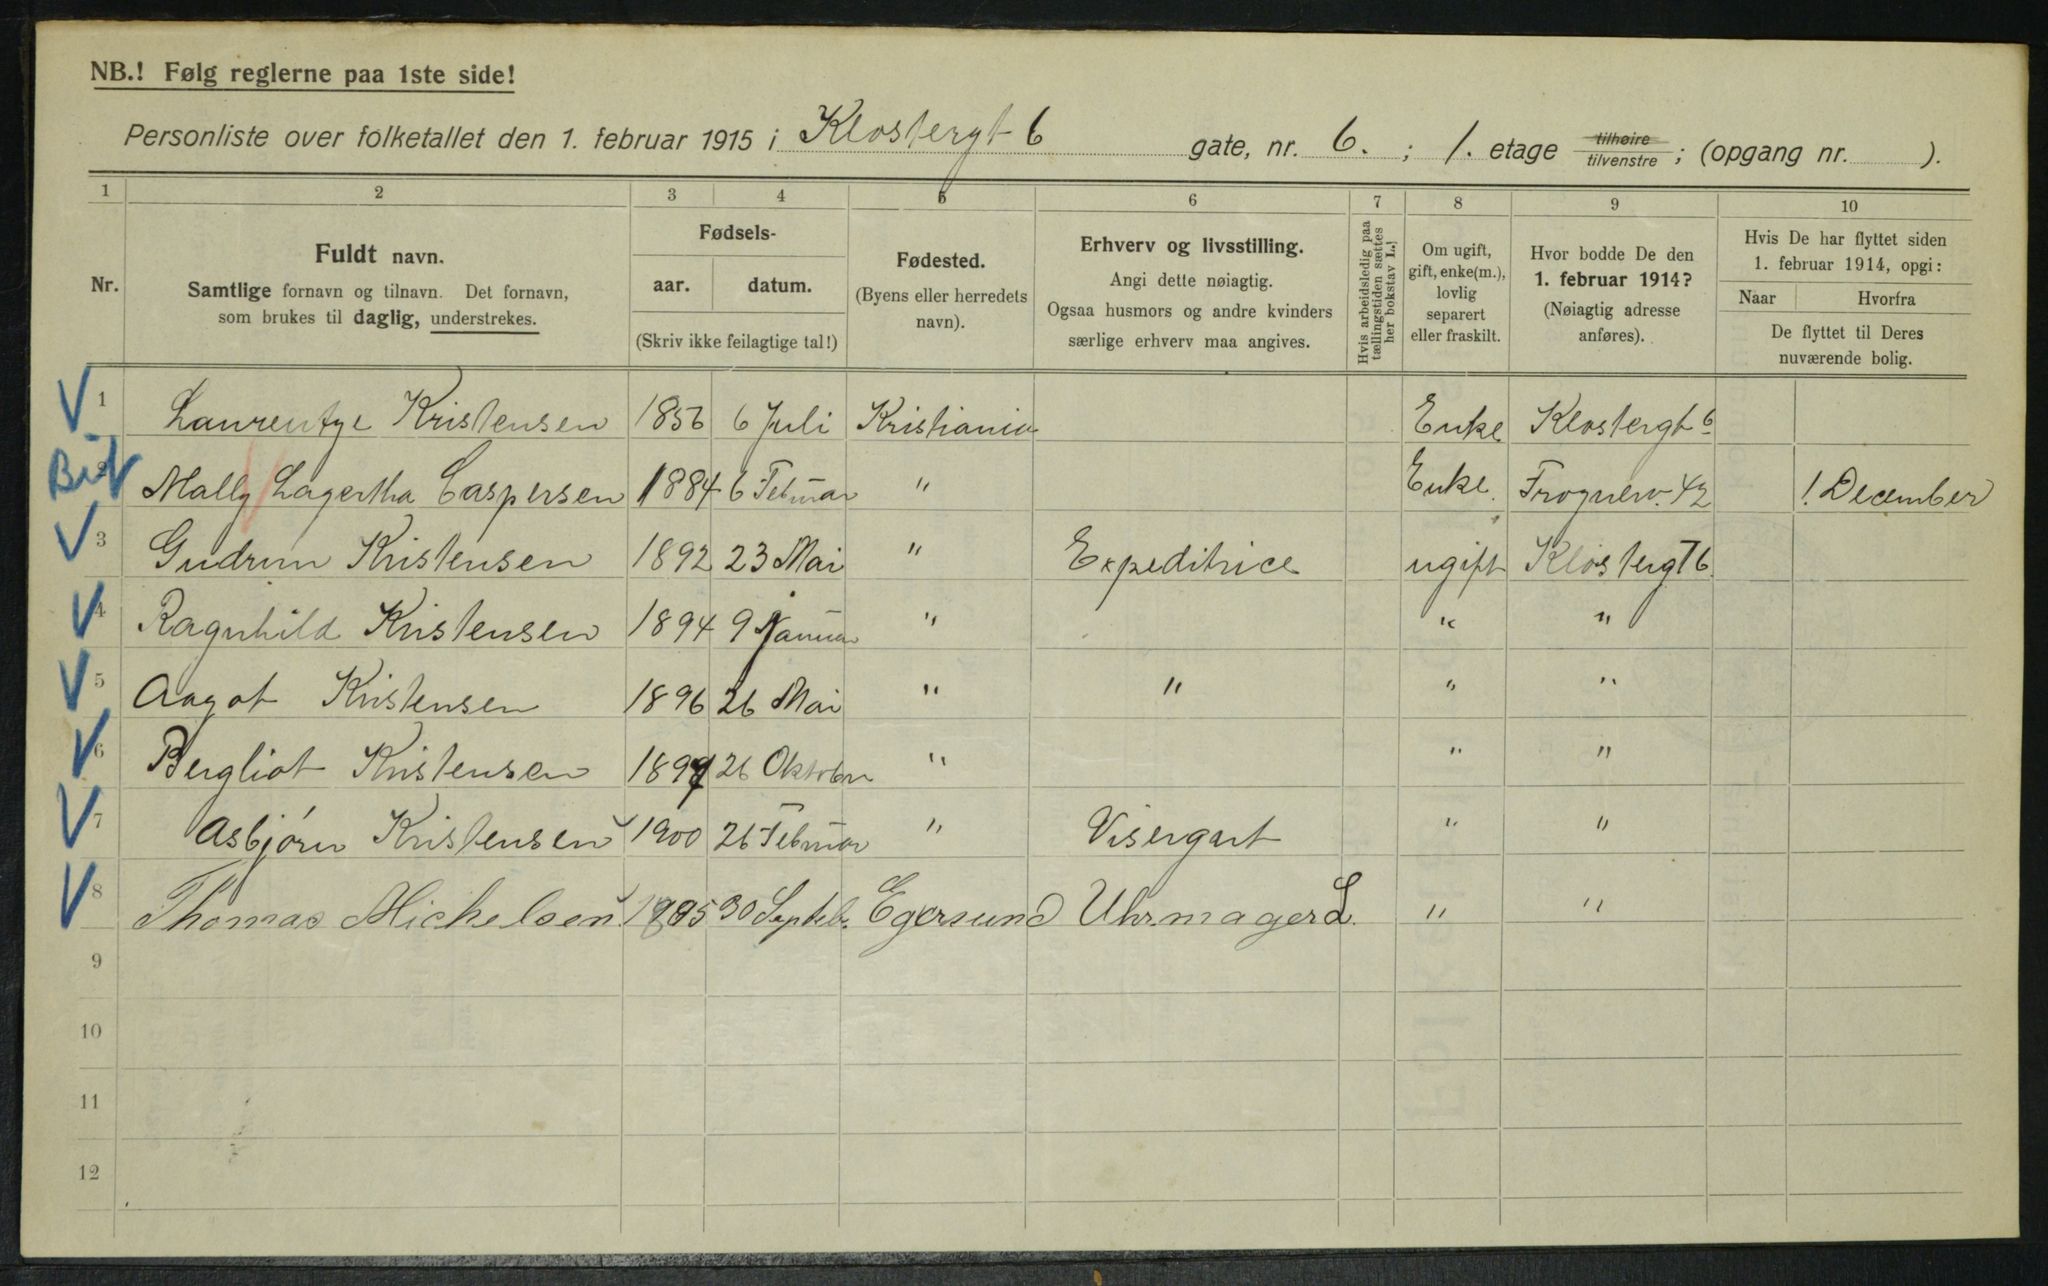 NB.! Følg reglerne paa 1ste side!
Personliste over folketallet den 1. februar 1915 i Klostergt 6 gate, nr. 6. ; 1. etage tilhøire tilvenstre ; (opgang nr. ).
1 2 3 4 5 6 7 8 9 10
Nr.
Fuldt navn.
Samtlige fornavn og tilnavn. Det fornavn,
som brukes til daglig, understrekes.
Fødsels-
aar. datum.
(Skriv ikke feilagtige tal!)
Fødested.
(Byens eller herredets
navn).
Erhverv og livsstilling.
Angi dette nøiagtig.
Ogsaa husmors og andre kvinders
særlige erhverv maa angives.
Hvis arbeidsledig paa
tællingstiden sættes
her bokstav L.]
Om ugift,
gift, enke(m.),
lovlig
separert
eller fraskilt.
Hvor bodde De den
1. februar 1914?
(Nøiagtig adresse
anføres).
Hvis De har flyttet siden
1. februar 1914, opgi:
Naar Hvorfra
De flyttet til Deres
nuværende bolig.
V 1 Laurentze Kristensen 1856 6 Juli Kristiania Enke Klostergt 6
V 2 Mally Lagertha Caspersen 1884 6 Februar " Enke. Frognerv. 42 1 December
V 3 Gudrun Kristensen 1892 23 Mai " Expeditrice ugift Klostergt 6
V 4 Ragnhild Kristensen 1894 9 Januar " " "
V 5 Aagot Kristensen 1896 26 Mai " " " "
V 6 Bergliot Kristensen 1897 26 Oktober " " "
V 7 Asbjørn Kristensen 1900 26 Februar " Visergut " "
V 8 Thomas Michelsen 1895 30 Septebr. Egersund Uhrmager L. " "
9
10
11
12